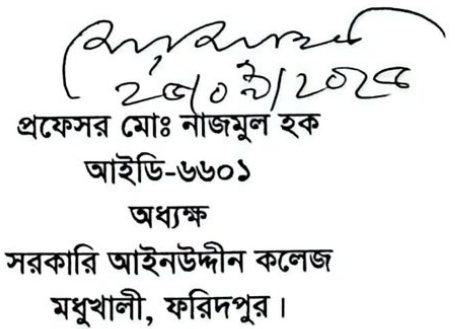 প্রফেসর মোঃ নাজমুল হক
আইডি-৬৬০১
অধ্যক্ষ
সরকারি আইনউদ্দীন কলেজ
মধুখালী, ফরিদপুর।